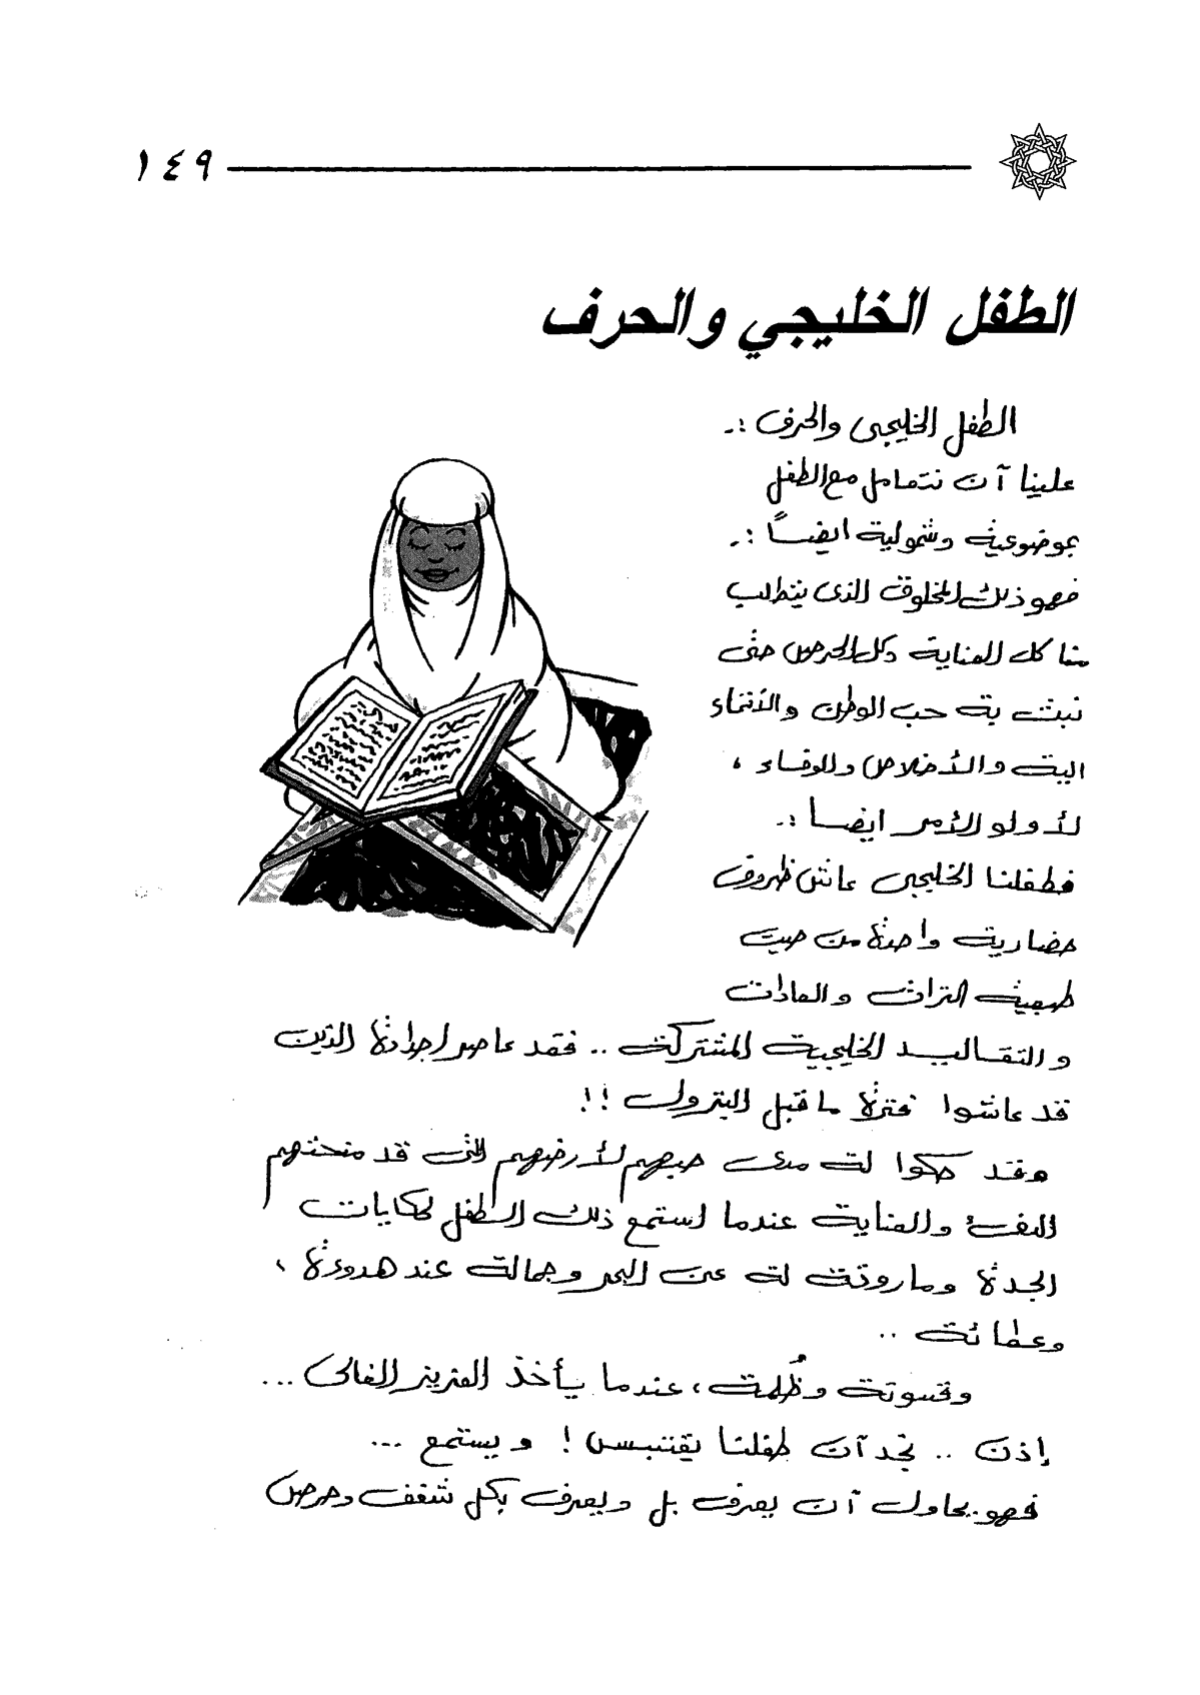 ١٤٩
الطفل الخليجي والحرف
الطفل الخليجى والحرف :ـ
علينا آن نتعامل مع الطفل
بموضوعية وشمولية ايضاً :ـ
فهو ذلك المخلوق الذى يتطلب
منا كل العناية وكل الحرص حتى
نبث بة حب الوطن والأنتماء
الية والأخلاص والوفاء ،
لأولو الأمر ايضا :ـ
فطفلنا الخليجى عاش ظروف
حضارية واحدة من حيث
طبيعة التراث والعادات
والتقاليد الخليجية المشتركة .. فقد عاصر اجدادة الذين
قد عاشوا فترة ما قبل البترول !!
وقد حكوا لة مدى حبهم لأرضهم التى قد منحتهم
الدفئ والعناية عندما استمع ذلك الطفل لحكايات
الجدة وماروتة لة عن البحر وجمالة عند هدوءة ،
وعطائة ..
وقسوتة وظُلمة ، عندما يأخذ العزيز الغالى ...
إذن .. نجد آن طفلنا يقتبس ! ويستمع ...
فهو يحاول آن يعرف بل ويعرف بكل شغف وحرص